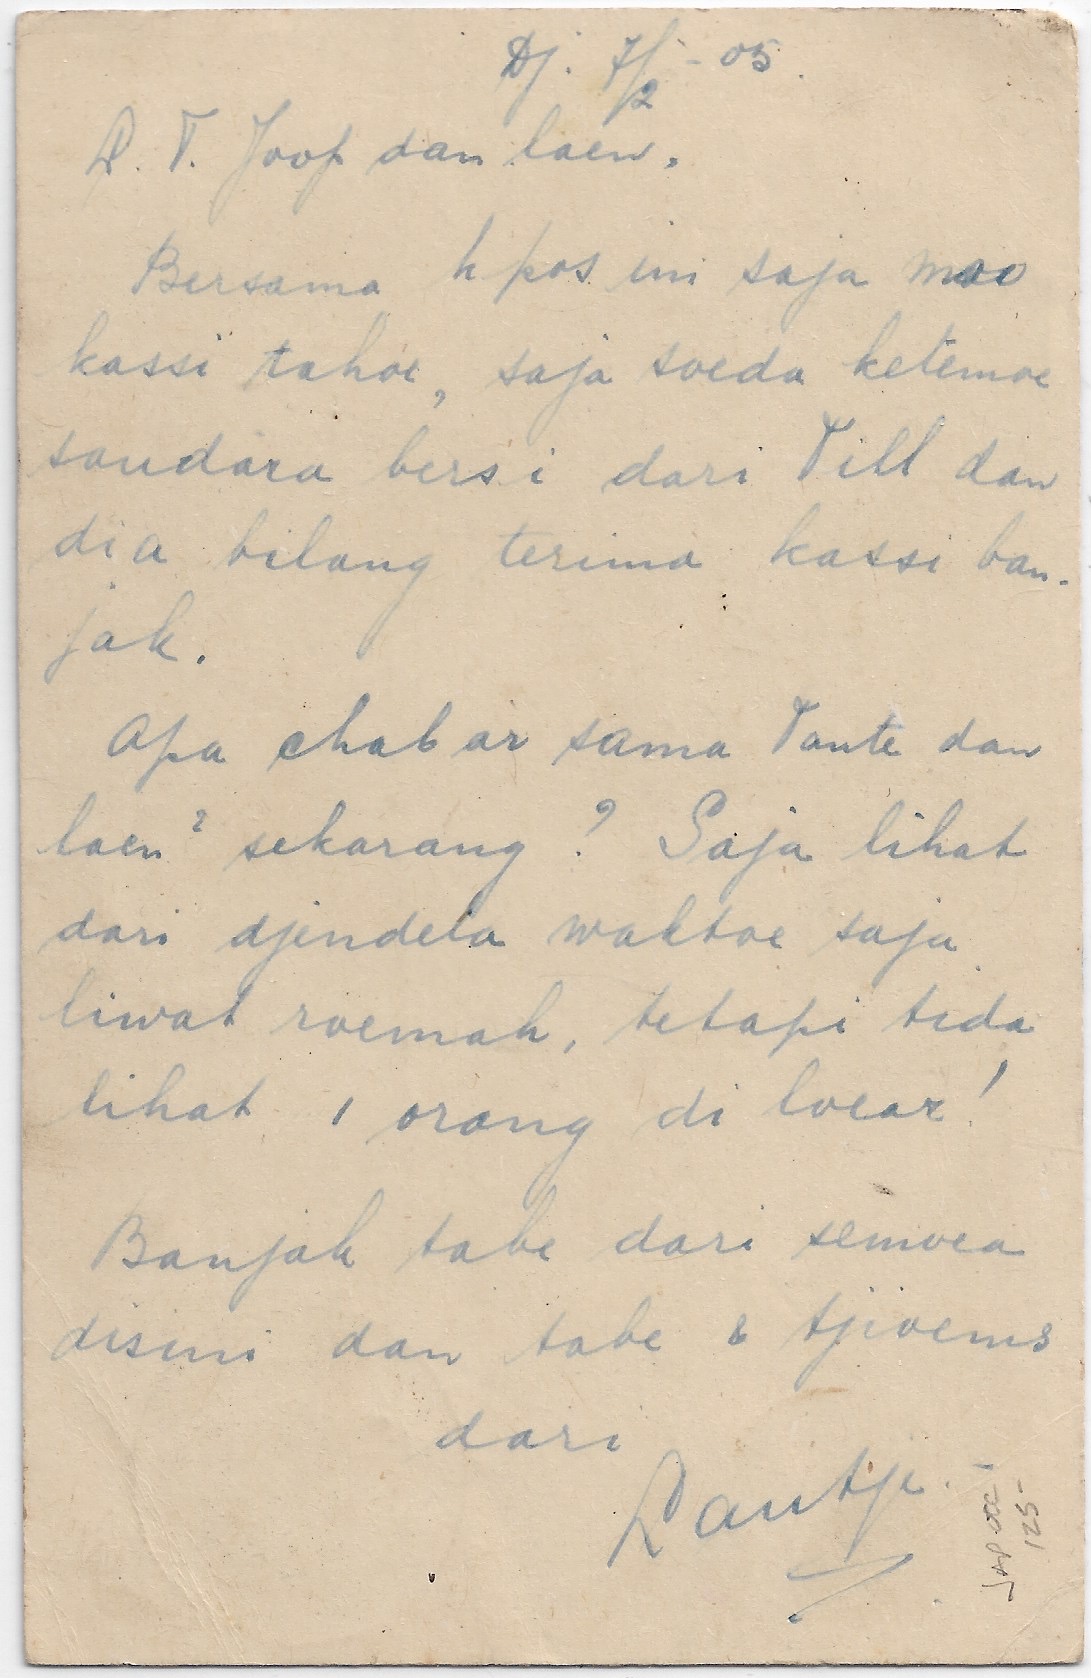 Dj. 7/2 - 05.
L. T. Joop dan laen.
Bersama k pos ini saja mao
kassi tahoe, saja soeda ketemoe
saudara bersi dari Till dan
dia bilang terima kassi ban-
jak.
Apa chabar sama Tante dan
laen² sekarang? Saja lihat
dari djendela waktoe saja
liwat roemah, tetapi tida
lihat 1 orang di loear!
Banjak tabe dari semoea
disini dan tabe & tjioems
dari
Lautje.-
JAP OCC
125-